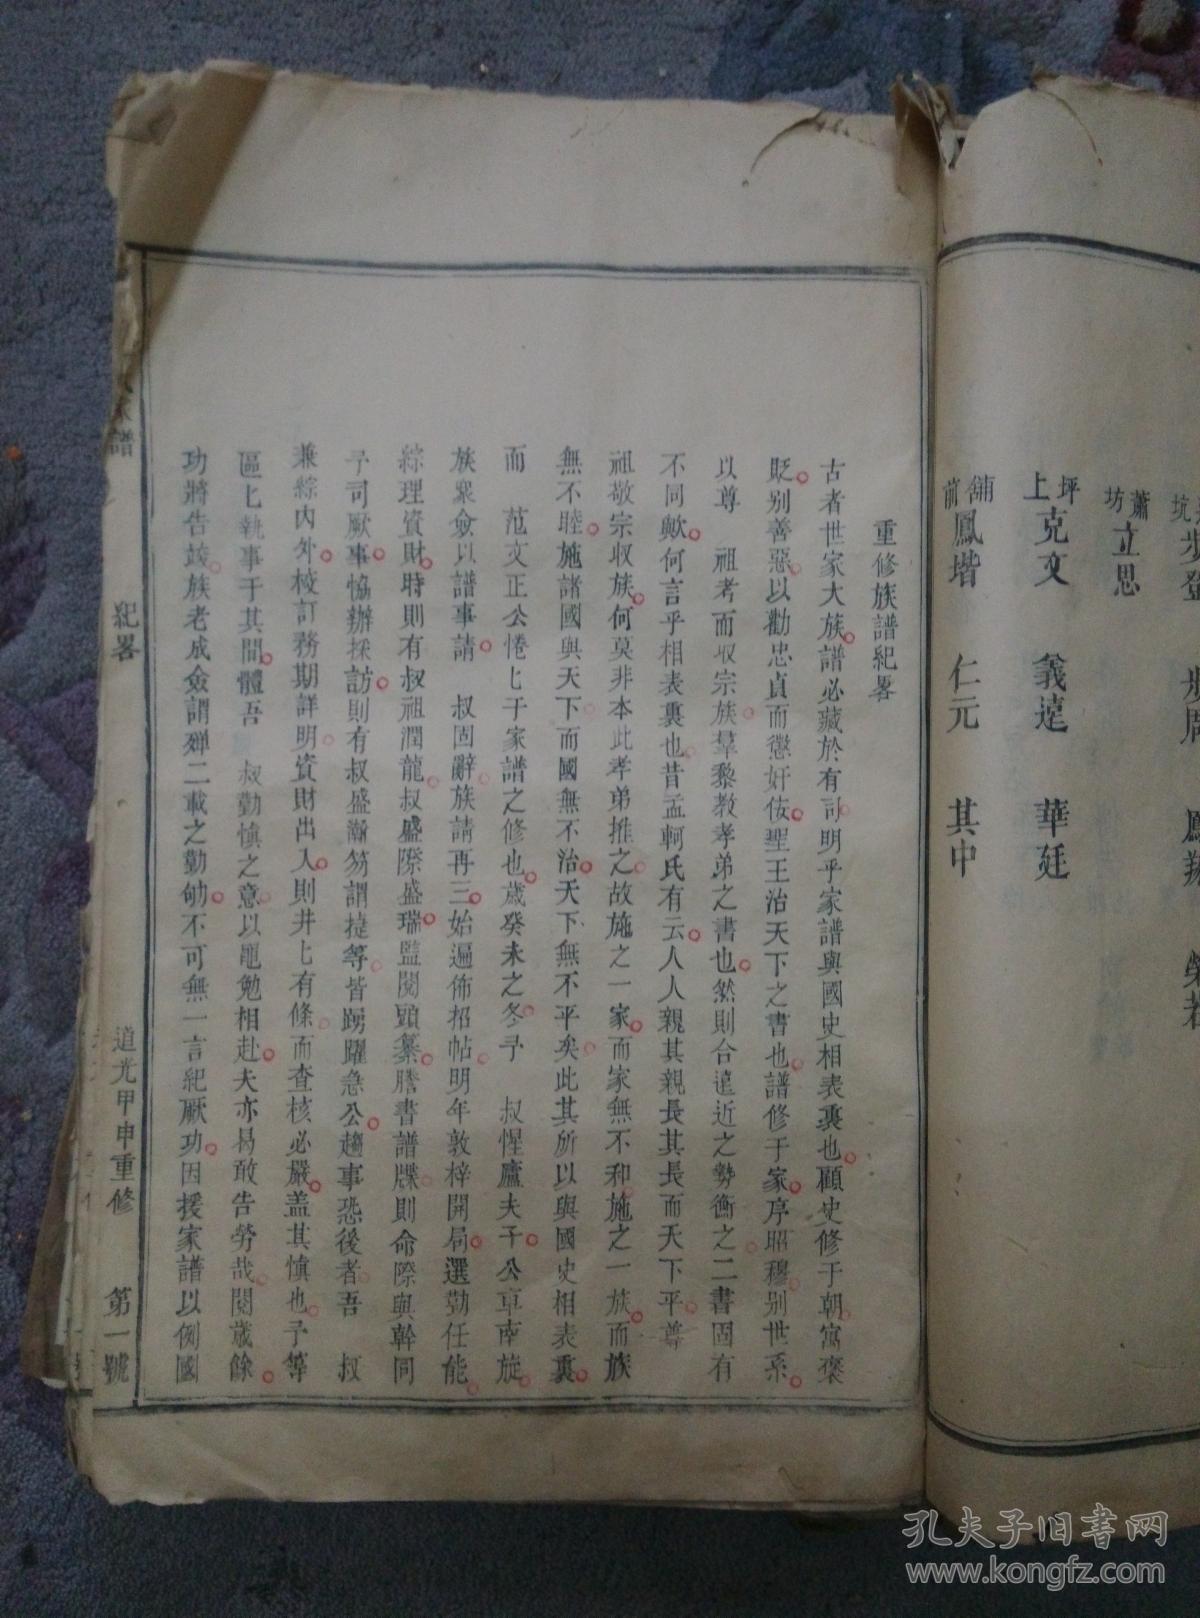 鳳 榮
蕭坊 立思
坪上 克文 義達 華廷
舖前 鳳堦 仁元 其中
重修族譜紀畧
古者世家大族譜必藏於有司明乎家譜與國史相表裏也顧史修于朝寓褒
貶别善惡以勸忠貞而懲奸佞聖王治天下之書也譜修于家序昭穆别世系
以尊 祖考而収宗族羣黎教孝弟之書也然則合遠近之勢衡之二書固有
不同歟何言乎相表裏也昔孟軻氏有云人人親其親長其長而天下平尊
祖敬宗収族何莫非本此孝弟推之故施之一家而家無不和施之一族而族
無不睦施諸國與天下而國無不治天下無不平矣此其所以與國史相表裏
而 范文正公惓匕于家譜之修也歲癸未之冬予 叔惺廬夫子公車南旋
族衆僉以譜事請 叔固辭族請再三始遍佈招帖明年敦梓開局選勤任能
綜理資財時則有叔祖潤龍叔盛際盛瑞監閱頭纂謄書譜牒則命際與幹同
予司厥事恊辦採訪則有叔盛瀚笏謂捷等皆踴躍急公趨事恐後者吾 叔
兼綜內外校訂務期詳明資財出入則井匕有條而查核必嚴盖其慎也予等
區匕執事于其間體吾 叔勤慎之意以黽勉相赴夫亦曷敢告勞哉閱歲餘
功將告竣族老成僉謂殫二載之勤劬不可無一言紀厥功因援家譜以例國
家譜 紀畧 道光甲申重修 第一號
孔夫子旧書网
www.kongfz.com